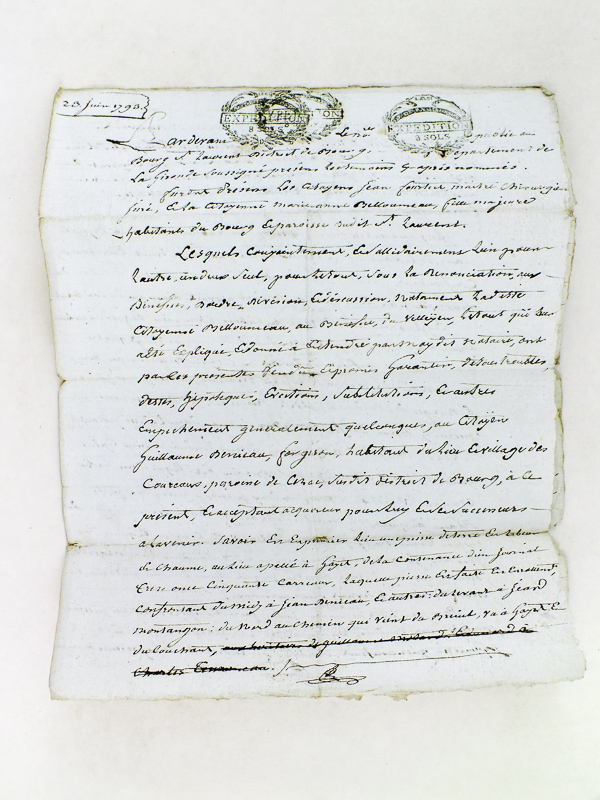 23 Juin 1793
EXPEDITION
8 SOLS
EXPEDITION
8 SOLS
Pardevant notaire au
Bourg St Laurent District de Bourg Departement de
La Gironde Soussigné présens les temoins cy après nommés
furent présens Les Citoyens Jean maitre Chirurgien
Juré, & La Citoyenne Marie anne Bellouneau, fille majeure
habitants du Bourg & paroisse dudit St Laurent.
Lesquels Conjointement, & Sollidairement L'un pour
Lautre, un deux Seul, pour Le tout, Sous La Renonciation aux
Bénéfices d'ordre, Division, & discussion, Notament Ladite
Citoyenne Bellouneau, au Bénéfice du Velléyen, Le tout qui Leur
a été Expliqué, & donné à Entendre par moy dit Notaire, ont
par Ces presentes Vendu & promis Garantir, de tous troubles,
dettes, hipoteques, Evictions, Substitutions, & autres
Empechement généralement quelconques, au Citoyen
Guillaume Benieau, forgeron, habitant du Lieu & Village des
Coureaux, paroisse de Cezac, Susdit district de Bourg, à Ce
présent, & acceptant acquereur pour Luy & Ses Successeurs
à Lavenir. Savoir Est En premier Lieu une piesse de terre En Labeur
& Chaume, au Lieu appellé à Gazet, de La Contenance d'un Journal
treze onze Cinquante Carreaux, Laquelle piesse
Confrontant du midy à Jean Benieau, & autres; du Levant à Jean
Montangon; du Nord au Chemin qui vient du va à Gazet &
du Couchant, aux héritiers de guillaume
Charles